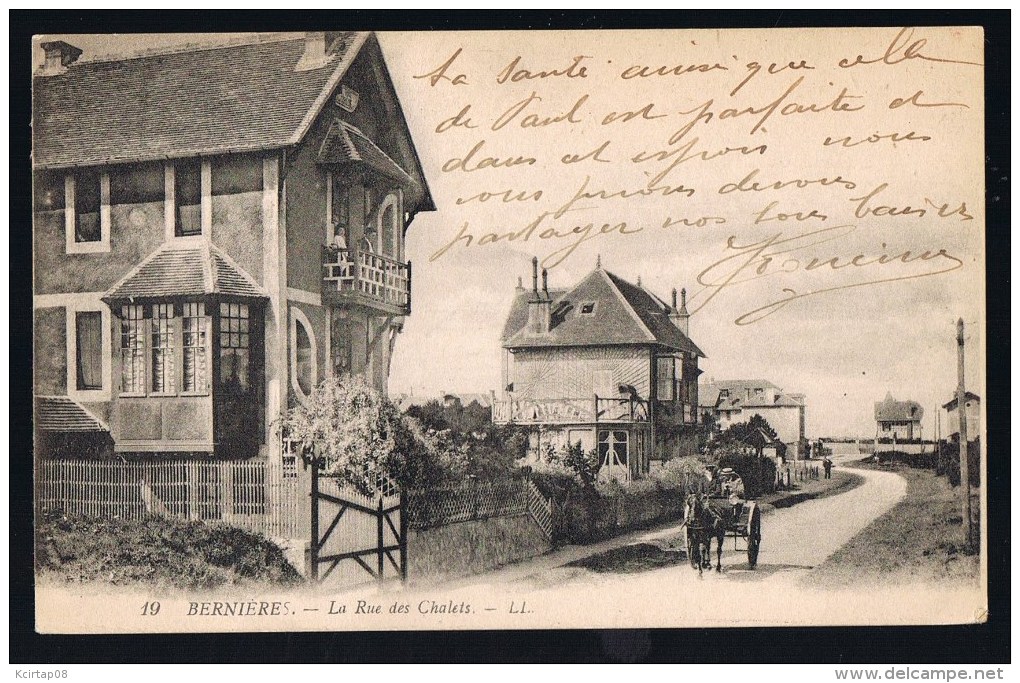 La santé ainsi que celle
de Paul est parfaite et
dans cet espoir nous
vous prions de vous
partager nos bons baisers
19 BERNIÈRES. - La Rue des Chalets. - LL.
Kcirtap08
www.delcampe.net